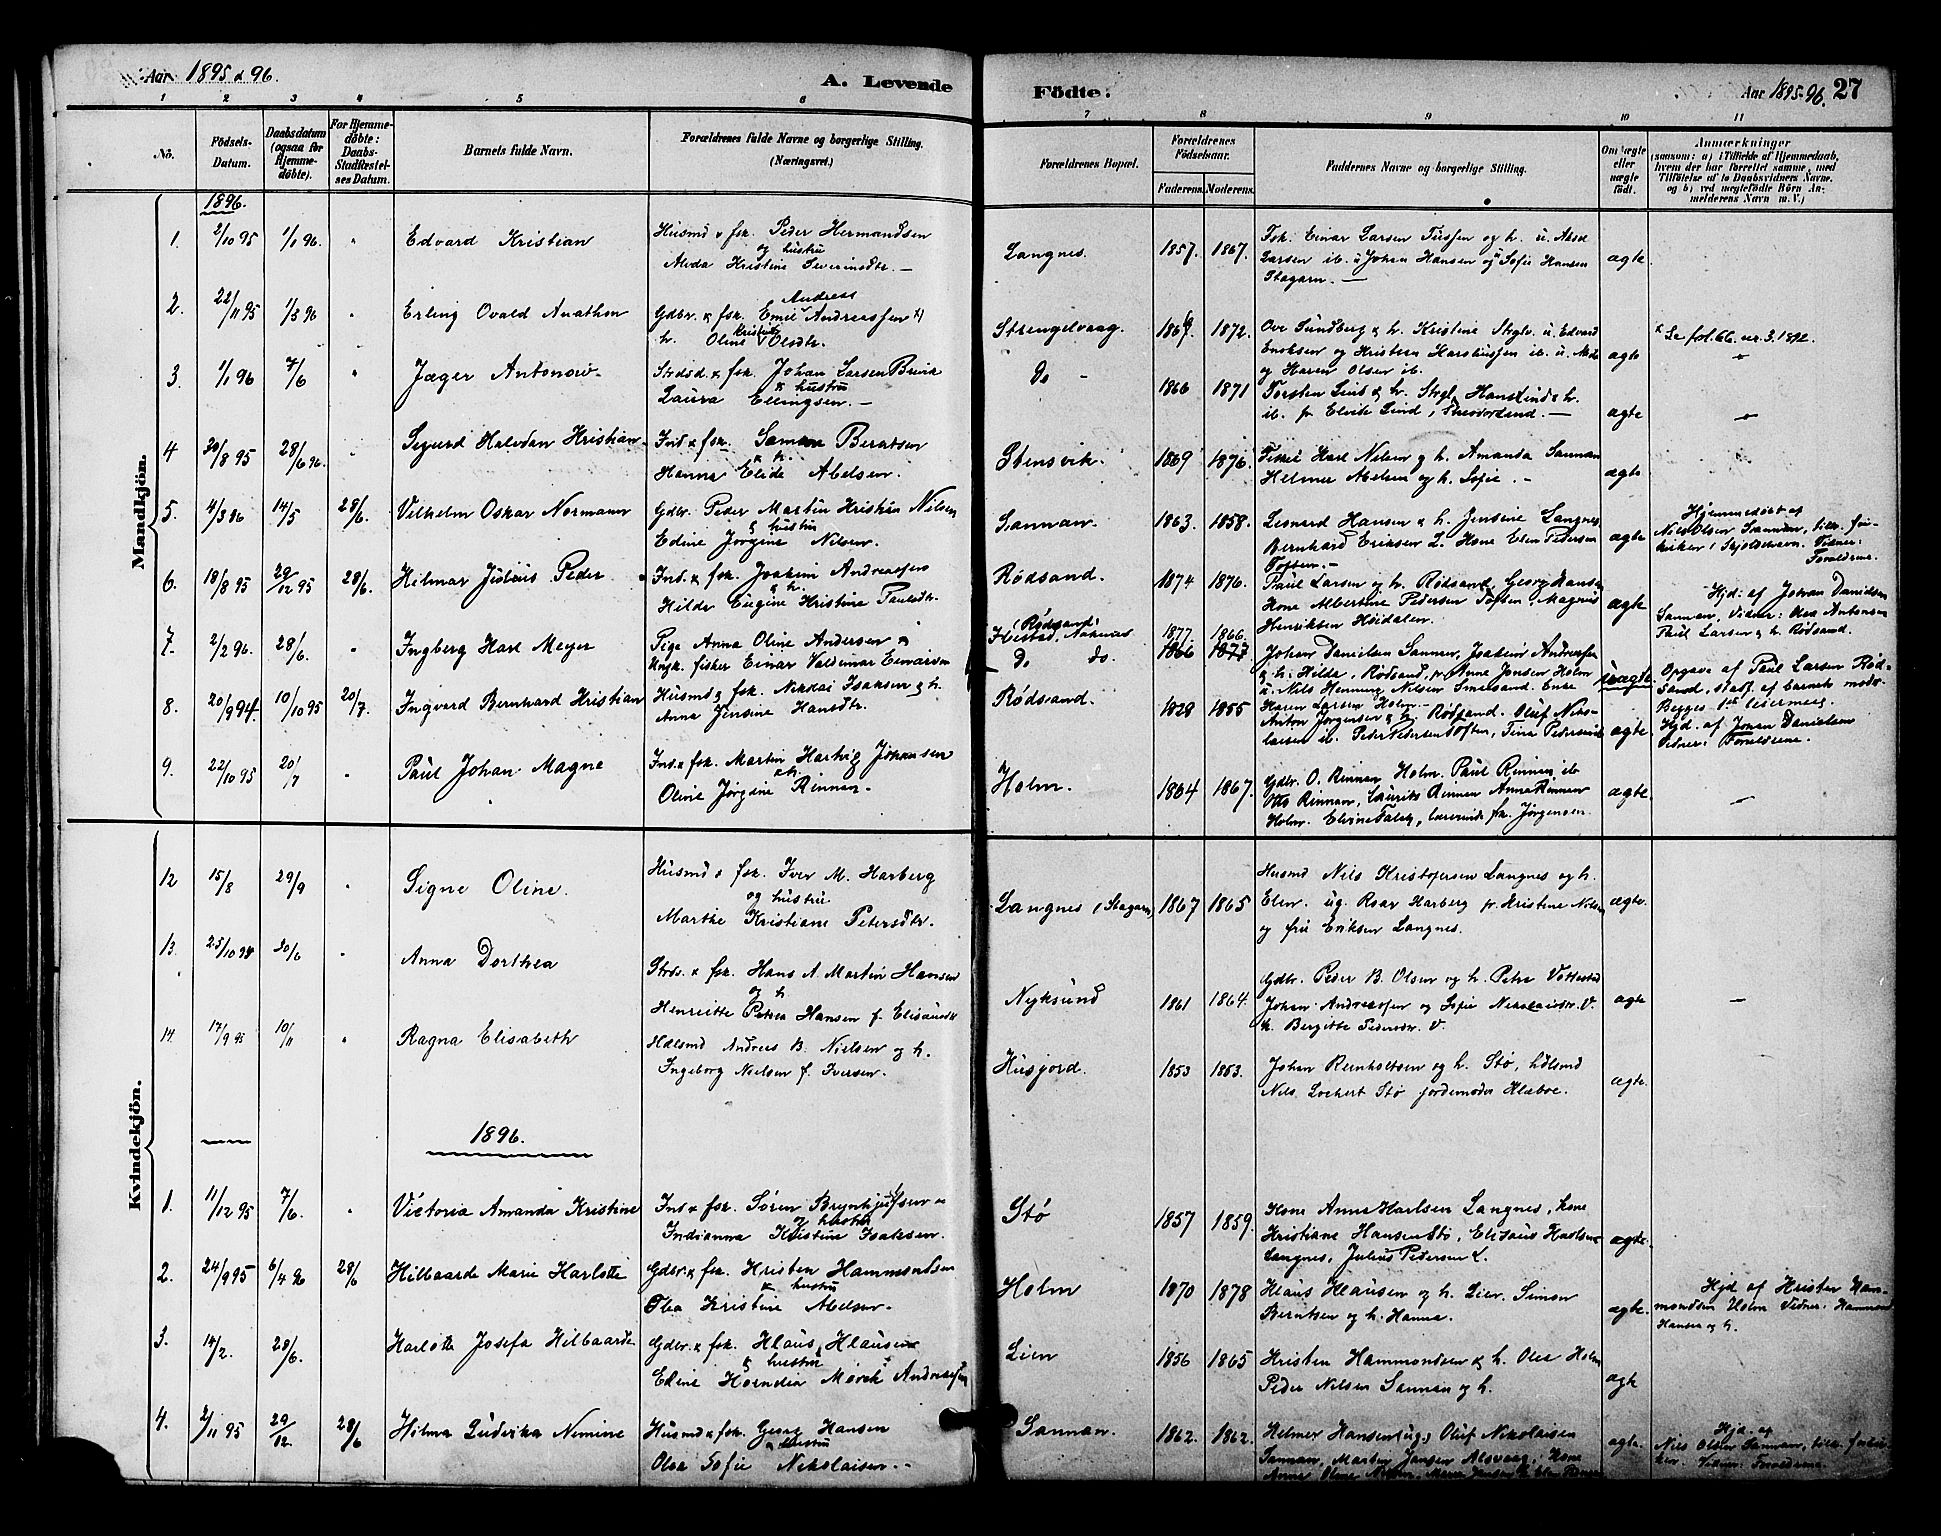 Aar 1895 & 96.
A. Levende
Födte:
Aar 1895-96. 27
1 2 3 4 5 6 7 8 9 10 11
No.
Födsels-Datum.
Daabsdatum (ogsaa for Hjemme-döbte).
For Hjemme-döbte: Daabs-Stadfæstel-ses Datum.
Barnets fulde Navn.
Forældrenes fulde Navne og borgerlige Stilling. (Næringsvei.)
Forældrenes Bopæl.
Forældrenes Födselsaar.
Faderens. Moderens.
Faddernes Navne og borgerlige Stilling.
Om ægte eller uægte födt.
Anmærkninger
(saasom: a) i Tilfælde af Hjemmedaab, hvem der har forrettet samme, med Tilföielse af to Daabsvidners Navne, og b) ved uægtefödte Börn An-melderens Navn m. V.)
Mandkjön.
1896.
1. 2/10 95 1/1 96. Edvard Kristian
Husmd & fsk. Peder Hermandsen
og hustru
Alvda Kristine Severinsdtr.
Langnes. 1857. 1867.
Fsk. Einar Larsen og h. u.
Larsen ib. Johan Hansen og Sofie Hansen
Stagarn. ægte
2. 22/11 95 1/3 96 Erling Ovald Anathon
Andreas
Gdbr. & fsk. Emil Andreassen x)
h. Oline Kristine Olsdtr.
Strengelvaag. 1872.
Ove Sundberg & h. Kristine Stglv. u. Edvard
Eriksen og Kristen ib. u.
og Karen Olsen ib.
ægte
x Se fol. 66. nr. 3. 1892.
3. 1/1 96 7/6 Jæger Antonow
Strdsd. & fsk. Johan Larsen Buvik
& hustru
Laura Ellingsen.
Do 1866 1871
Torsten Lind & h. Strgl. Hans Lind & h.
ib. pr Elvik Lind,
ægte
4 30/8 95 28/6 96. Sigurd Halvdan Kristian
Ind & fsk. Bentsen
& h.
Hanna Elide Abelsen.
Stensvik. 1869 1876.
Karl Nilsen og h. Amanda Sannan
Helmer Abelsen og h. Sofie.
ægte
5. 4/3 96 14/5 28/6. Vilhelm Oskar Normann
Gdbr. Peder Martin Kristian Nilsen
& hustru
Edine Jørgine Nilsen.
Sannan. 1863. 1858.
Leonard Hansen & h. Jensine Langnes.
Bernhard Eriksen L. Kone Elen Pedersen
Toften.
ægte
Hjemmedøbt af
Nils Olsen Sannan,
Vidner:
Forældrene.
6. 18/8 95 29/12 95 28/6. Hilmar Julius Peder
Ind. & fsk. Joakim Andreassen
& h.
Hilda Eugine Kristine Paulsdtr.
Rødsand. 1874 1876.
Paul Larsen og h. Rødsand, Georg Hansen
Kone Albertine Pedersen Toften, Magnus
Henriksen Høidalen.
ægte
Hjd: af Johan Danielsen
Sannan, Vidner: Antonsen
Paul Larsen & h. Rødsand.
7. 2/2 96. 28/6. Ingberg Karl Meyer
Pige Anna Oline Andersen &
Ungk. fisker Einar Valdemar Einarsen
(Rødsand)
Do do.
1877. 1866.
1866 1877
Johan Danielsen Sannan, Joakim Andreassen
& h. Hilda, Rødsand, pr Anne Jonsen Holm
u. Nils Henning Nilsen Smelsand. Enke
Karen Larsen Holm.
uægte.
Opgave af Paul Larsen Rød-
sand, stadf. af barnets moder
Begges 1ste leiermaal.
8. 20/9 94. 10/10 95 20/7. Ingvard Bernhard Kristian
Husmd & fsk. Nikolai Isaksen & h.
Anna Jensine Hansdtr.
Rødsand. 1828 1855
Anton Jørgensen & h. Rødsand. Oluf Niko-
laisen ib. Peder Pedersen Toften, Tina Pedersen ib
ægte.
Hjd. af Johan Danielsen
Vidner: Forældrene.
9. 22/10 95 20/7 Paul Johan Magne
Ind. & fsk. Martin Hartvig Johansen
& h.
Oline Jørgine Rinnan.
Holm. 1864 1867.
Gdbr. O. Rinnan Holm. Paul Rinnan ib
Otto Rinnan, Laurits Rinnan Anna Rinnan
Holm. Elvine Falch, lærerinde frk. Jørgensen
ægte.
Kvindekjön.
12 15/8 29/9 Signe Oline.
Husmd & fsk. Iver M. Harberg
og hustru
Marthe Kristiane Petersdtr.
Langnes (Stagarn) 1867 1865
Husmd Nils Kristofersen Langnes og h.
Elen. ug. Roar Harberg pr. Kristine Nilsen
og fru Eriksen Langnes.
ægte.
13. 25/10 94 30/6 Anna Dorthea
Strds. & fsk. Hans A. Martin Hansen
og h
Henriette Petrea Hansen f. Elisausdtr
Nyksund 1861 1864.
Gdbr. Peder B. Olsen og h. Petra Vottestad
Johan Andreassen og Sofie Nikolaisdtr. V.
h. Bergitte Pedersdtr. V.
ægte
14. 17/9 95 10/11 Ragna Elisabeth
Hdlsmd Andreas B. Nielsen og h.
Ingeborg Nielsen f. Iversen.
Husjord. 1853 1853.
Johan Reinholtsen og h. Stø, hdlsmd
Nils Lockert Stø jordemoder Klæboe.
ægte.
1896.
1. 11/12 95 7/6. Victoria Amanda Kristine
Ind & fsk. Søren Brynhjulfsen &
og hustru
Indianna Kristine Isaksen.
Stø 1857 1859.
Kone Anna Karlsen Langnes, kone
Kristiane Hansen Stø, Elisaus Karlsen
Langnes, Julius Pedersen L.
ægte.
2. 24/9 95 6/4 96 28/6 Hilbaarde Marie Karlotte
Gdbr. & fsk. Kristen Hammondsen
& hustru
Olea Kristine Abelsen.
Holm 1870 1878
Klaus Klausen og h. Lien. Simon
Berntsen og h. Hanna.
ægte.
Hjd af Kristen Ham-
mondsen Holm Vidner: Hammond
Hansen og h.
3. 14/2. 28/6. Karlotte Josefa Hilbaarde
Gdbr. & fsk. Klaus Klausen
& hustru
Edine Horndia Mørch Andreassen
Lien 1856 1865
Kristen Hammondsen & h. Olea Holm
Peder Nilsen Sannan og h.
ægte
4. 2/11 95 29/12 28/6 Hilma Ludvika Nimine
Husmd & fsk. Georg Hansen
& hustru
Olea Sofie Nikolaisen.
Sannan. 1862. 1862.
Helmer Hansen (ug.) Oluf Nikolaisen
Sannan, Martin Jansen Alsvaag, Kone
ægte.
Hjd. af
Nils Olsen Sannan,
Vidner: Forældrene.